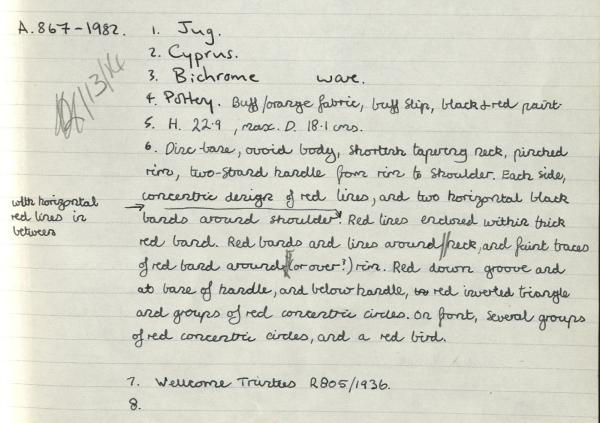 A.867-1982. 1. Jug.
2. Cyprus.
3. Bichrome ware.
4. Pottery. Buff/orange fabric, buff slip, black & red paint.
5. H. 22.9, max. D. 18.1 cms.
6. Disc-base, ovoid body, shortish tapering neck, pinched
rim, two-strand handle from rim to shoulder. Each side,
concentric design of red lines, and two horizontal black
with horizontal
red lines in
between
bands around shoulder. Red lines enclosed within thick
red band. Red bands and lines around neck, and faint traces
of red band around (or over?) rim. Red down groove and
at base of handle, and below handle, red inverted triangle
and groups of red concentric circles. On front, several groups
of red concentric circles, and a red bird.
7. Wellcome Trustees R805/1936.
8.